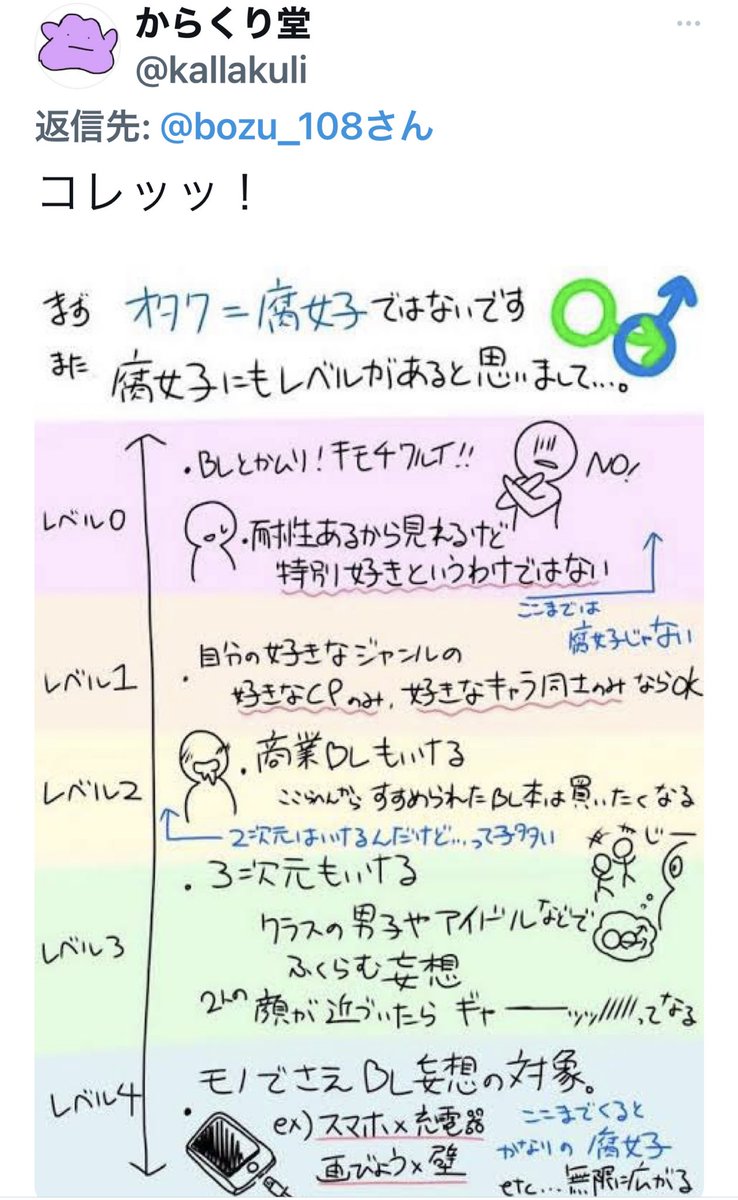 からくり堂
@kallakuli
返信先: @bozu_108さん
コレッッ！
まず オタク=腐女子ではないです
また 腐女子にもレベルがあると思いまして...。
レベル0
・BLとかムリ!キモチワルイ!!
NO!
・耐性あるから見えるけど
特別好きというわけではない
ここまでは
腐女子じゃない
レベル1
・自分の好きなジャンルの
好きなCPのみ、好きなキャラ同士のみならOK
レベル2
・商業BLもいける
ここらへんからすすめられたBL本は買いたくなる
2次元はいけるんだけど...って子多い
レベル3
・3次元もいける
じー
クラスの男子やアイドルなどで
ふくらむ妄想
2人の顔が近づいたら ギャーーッッ/////ってなる
レベル4
・モノでさえBL妄想の対象。
ex)スマホ×充電器
画びょう×壁
ここまでくると
かなりの腐女子
etc...無限に広がる